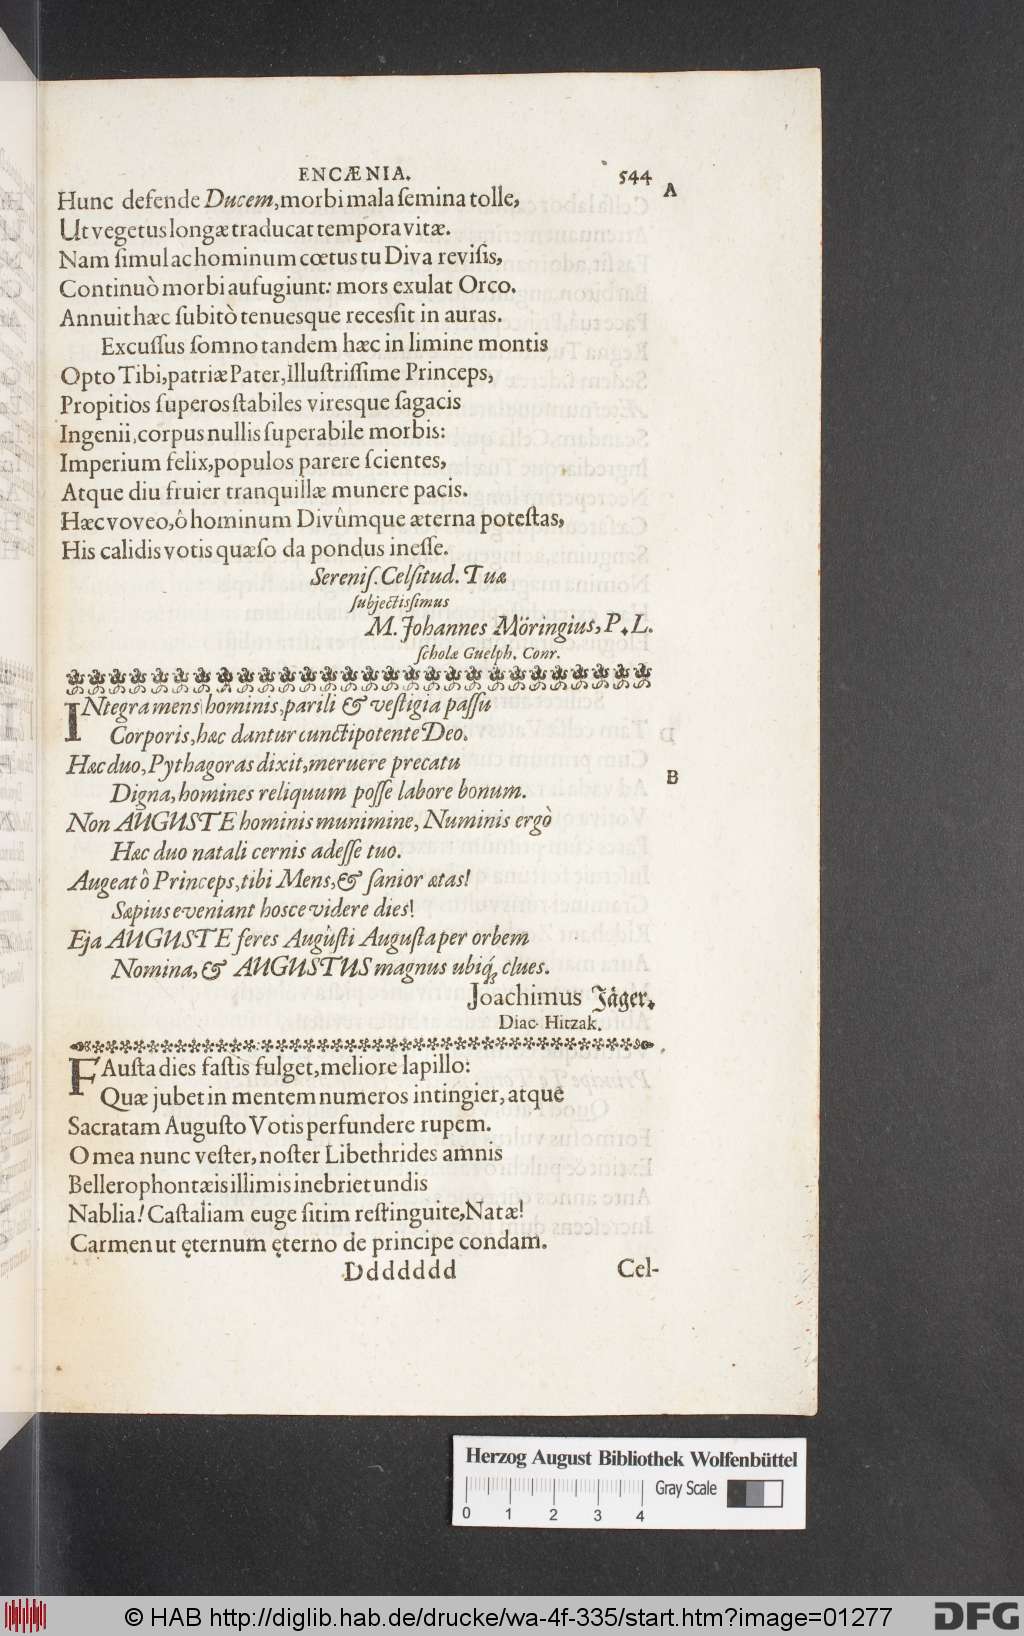 ENCÆNIA. 544
A
Hunc defende Ducem, morbi mala ſemina tolle,
Ut vegetus longæ traducat tempora vitæ.
Nam ſimul ac hominum cœtus tu Diva reviſis,
Continuò morbi aufugiunt: mors exulat Orco.
Annuit hæc ſubitò tenuesque recesſit in auras.
Excuſſus ſomno tandem hæc in limine montis
Opto Tibi, patriæ Pater, Illuſtriſſime Princeps,
Propitios ſuperos ſtabiles viresque ſagacis
Ingenii, corpus nullis ſuperabile morbis:
Imperium felix, populos parere ſcientes,
Atque diu fruier tranquillæ munere pacis.
Hæc voveo, ô hominum Divûmque æterna poteſtas,
His calidis votis quæſo da pondus ineſſe.
Sereniſ. Celſitud. Tuæ
ſubjectisſimus
M. Johannes Möringius, P. L.
ſcholæ Guelph. Conr.
INtegra mens hominis, parili & veſtigia paſſu
Corporis, hæc dantur cunctipotente Deo.
Hæc duo, Pythagoras dixit, meruere precatu
B
Digna, homines reliquum poſſe labore bonum.
Non AUGUSTE hominis munimine, Numinis ergò
Hæc duo natali cernis adeſſe tuo.
Augeat ô Princeps, tibi Mens, & ſanior ætas!
Sæpius eveniant hosce videre dies!
Eja AUGUSTE feres Auguſti Auguſta per orbem
Nomina, & AUGUSTUS magnus ubiq́; clues.
Joachimus Jäger.
Diac. Hitzak.
FAuſta dies faſtis fulget, meliore lapillo:
Quæ jubet in mentem numeros intingier, atque
Sacratam Auguſto Votis perfundere rupem.
O mea nunc veſter, noſter Libethrides amnis
Bellerophontæis illimis inebriet undis
Nablia! Caſtaliam euge ſitim reſtinguite, Natæ!
Carmen ut ęternum ęterno de principe condam.
Ddddddd Cel-
Herzog August Bibliothek Wolfenbüttel
Gray Scale
0 1 2 3 4
© HAB http://diglib.hab.de/drucke/wa-4f-335/start.htm?image=01277
DFG